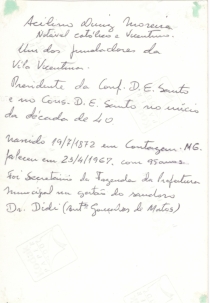 Diniz Moreira
Notável católico e Vicentino.
Um dos fundadores da
Vila Vicentina.
Presidente da Conf. D. E. Santo
e no Cons. D. E. Santo no início
da década de 40
nascido 19/7/1872 em Contagem. MG.
faleceu em 23/4/1967, com 95 anos.
Foi Secretário da Fazenda da Prefeitura
Municipal na gestão do saudoso
Dr. Didi (Antº Gonçalves de Matos)